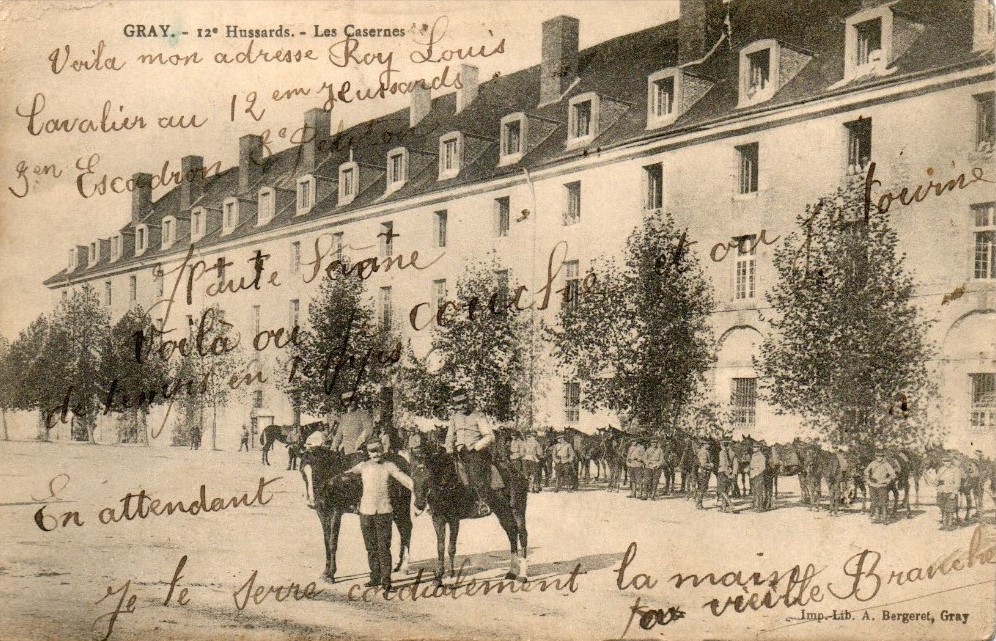 GRAY. - 12e Hussards. - Les Casernes
Voila mon adresse Roy Louis
Cavalier au 12 em Hussards
3en Escadron 3e Peloton
Haute Saône
Voilà ou couche et ou j tourine
de temps en temps
En attendant
Je te serre cordialement la main
ta vieille Branche
Imp. Lib. A. Bergeret, Gray